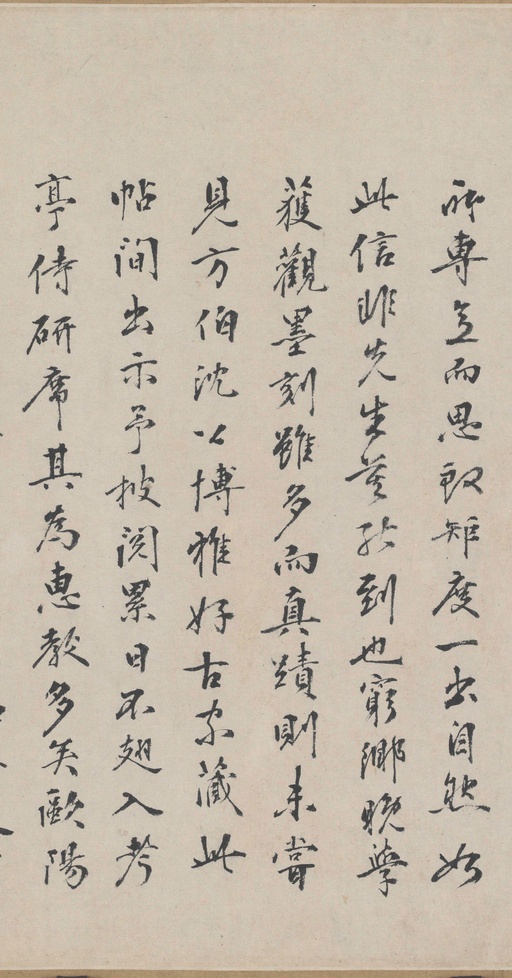 師專意而思致矩度一出自然如
此信非先生莫能到也窮鄉晚學
獲觀墨刻雖多而真蹟則未嘗
見方伯沈公博雅好古家藏此
帖間出示予披閱累日不翅入考
亭侍研席其為惠教多矣歐陽